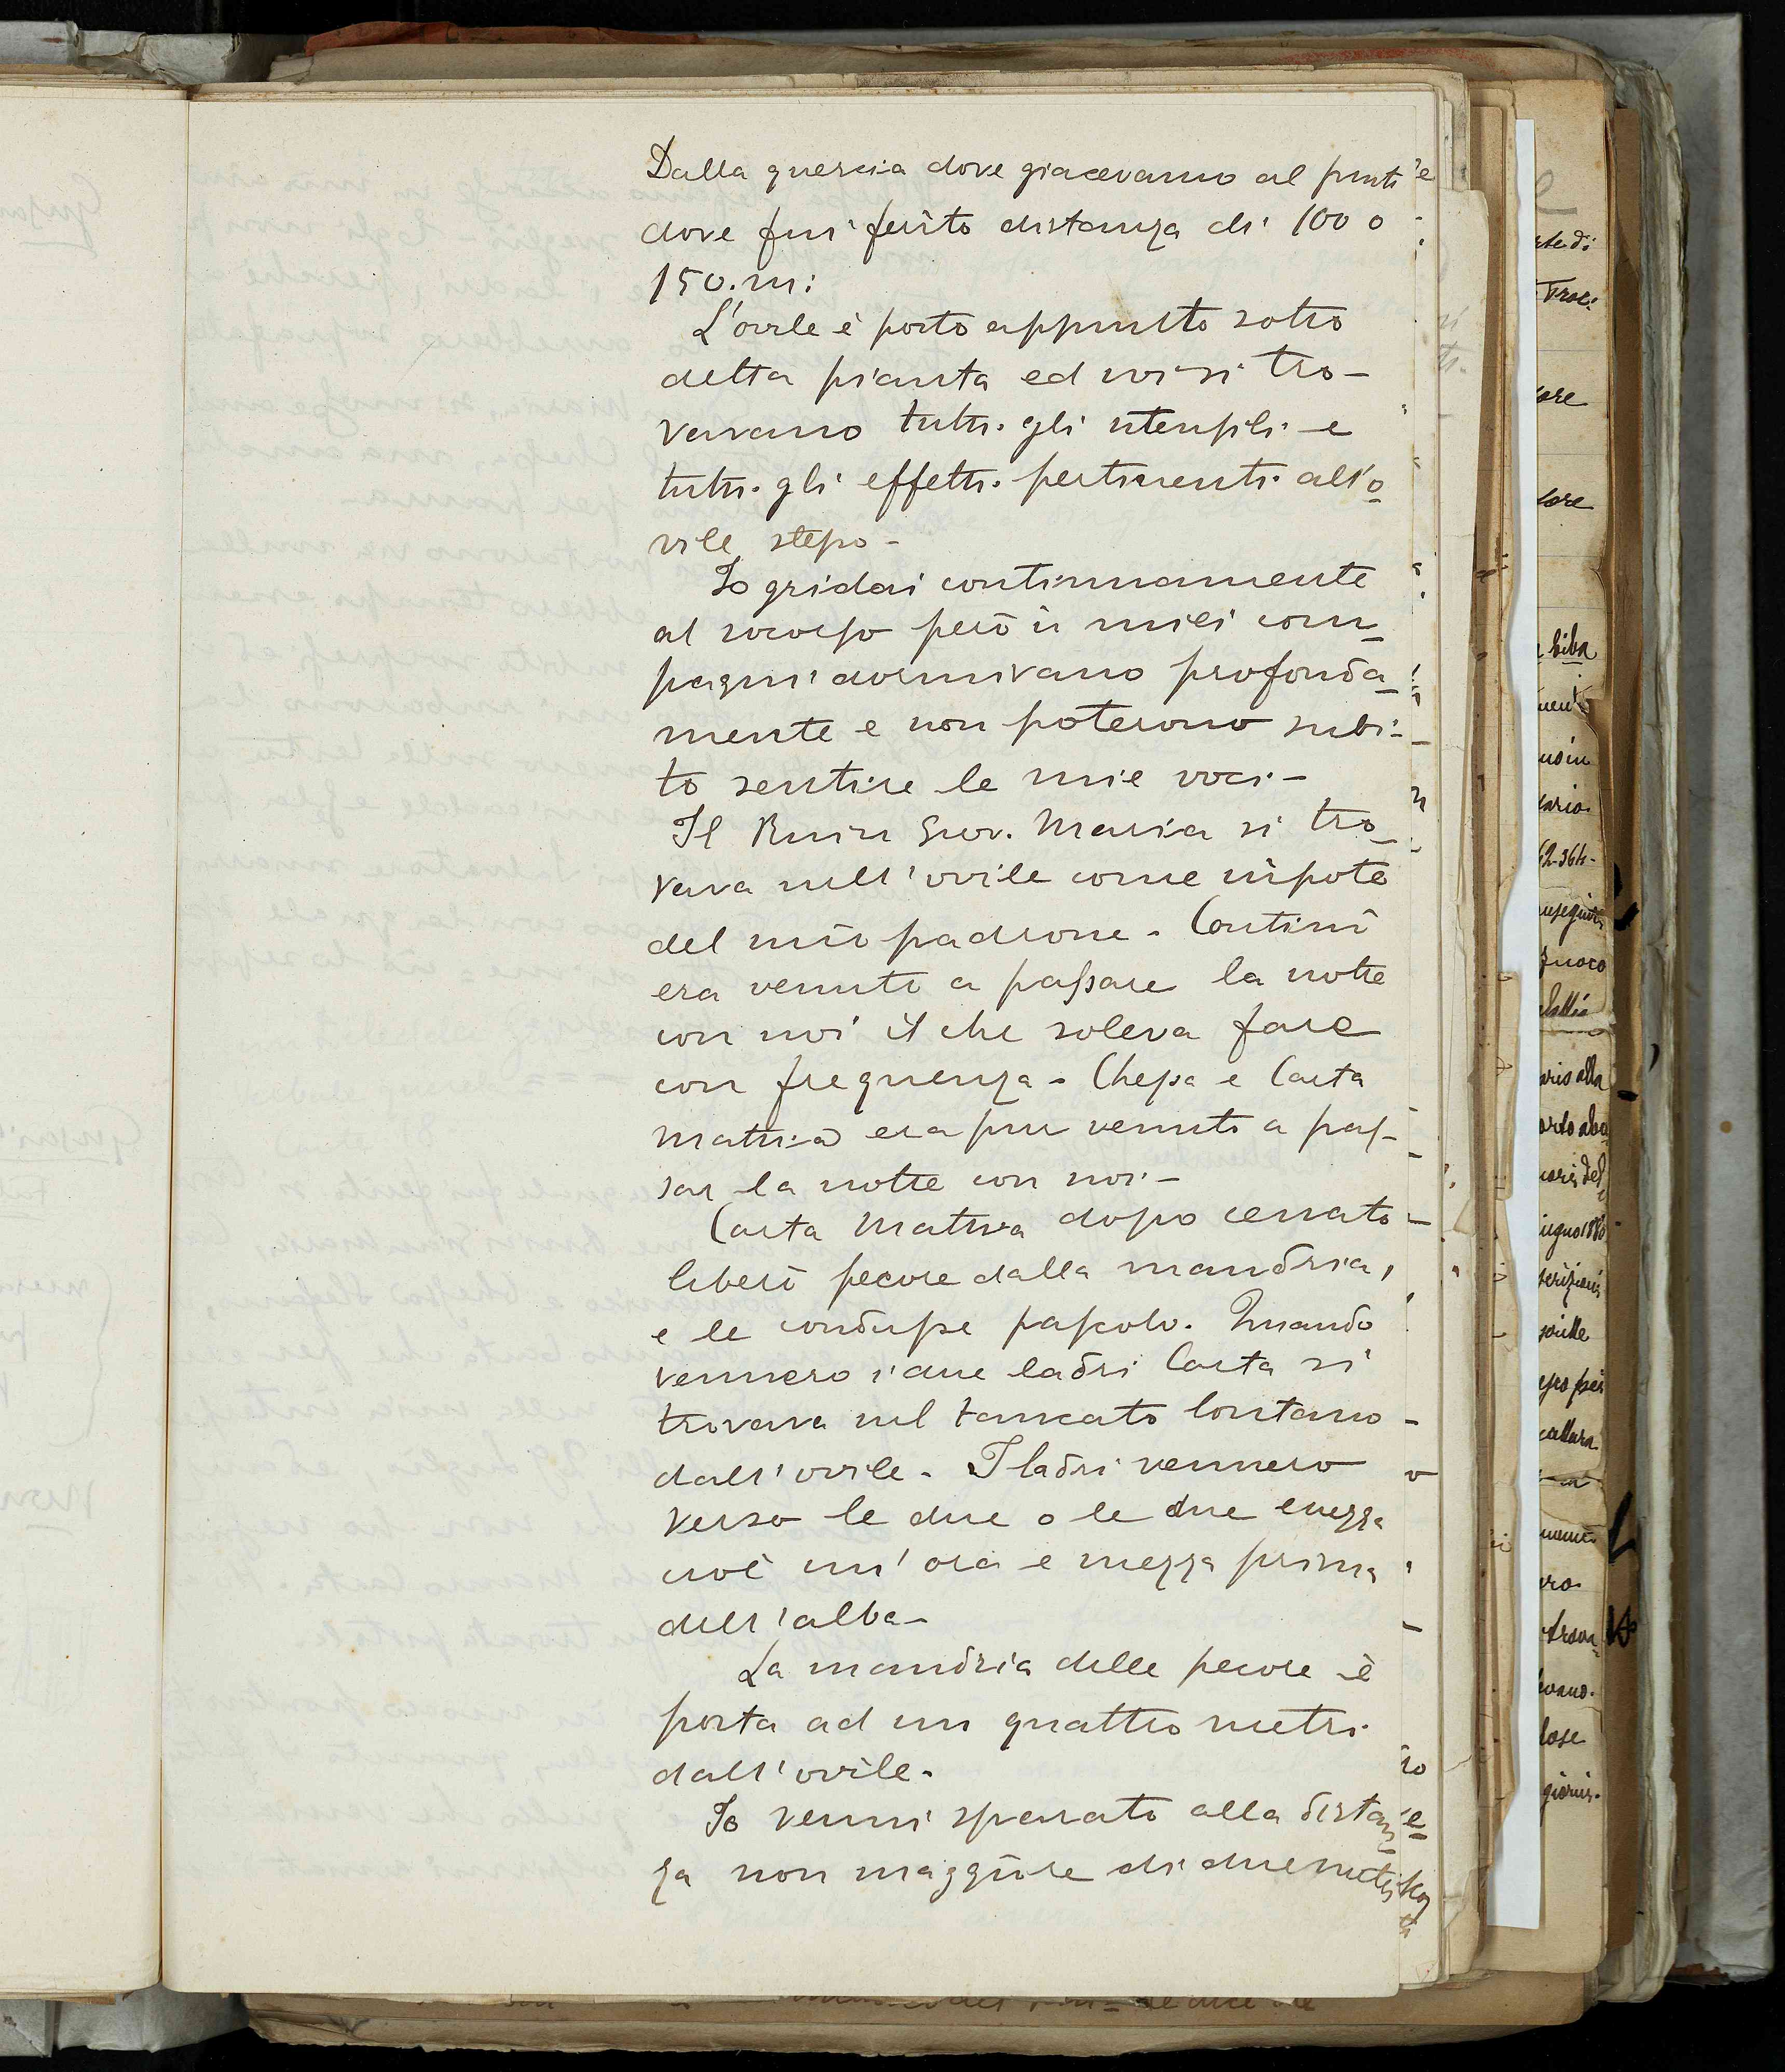 Dalla quercia dove giacevamo al punto
dove fui ferito distanza di 100 o
150. m:
L'ovile è posto appunto sotto
detta pianta ed ivi si tro-
vavano tutti gli utensili e
tutti gli effetti pertinenti all'o
vile stesso -
Io gridai continuamente
al socorso però i miei com_
pagni dormivano profonda_
mente e non poterono subi-
to sentire le mie voci -
Il Ruiu Giov. Maria si tro_
vava nell'ovile come nipote
del mio padrone. Contini
era venuto a passare la notte
con noi il che soleva fare
con frequenza. Chessa e Carta
Mattia era pur venuto a pas-
sar la notte con noi -
Carta Mattia dopo cenato
liberò pecore dalla mandria,
e le condusse pascolo. Quando
vennero i due ladri Carta si
trovava nel tancato lontano
dall'ovile. I ladri vennero
verso le due o le due e mezza
cioè un'ora e mezza prima
dell'alba -
La mandria delle pecore è
posta ad un quattro metri
dall'ovile.
Io venni sparato alla distan_
za non maggiore di due metri